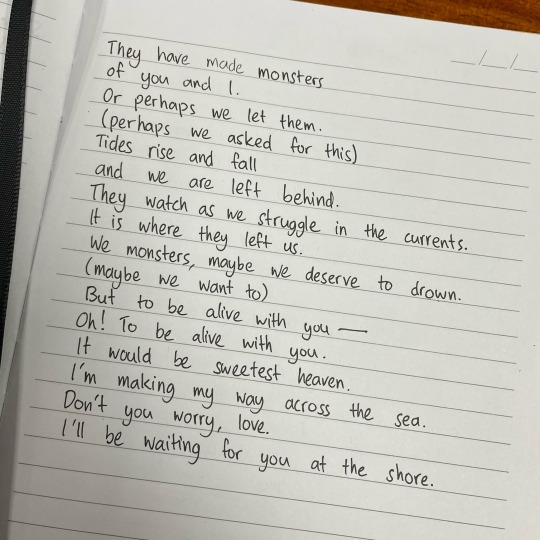 They have made monsters
of you and I.
Or perhaps we let them.
(perhaps we asked for this)
Tides rise and fall
and we are left behind.
They watch as we struggle in the currents.
It is where they left us.
We monsters, maybe we deserve to drown.
(maybe we want to)
But to be alive with you —
Oh! To be alive with you.
It would be sweetest heaven.
I'm making my way across the sea.
Don't you worry, love.
I'll be waiting for you at the shore.